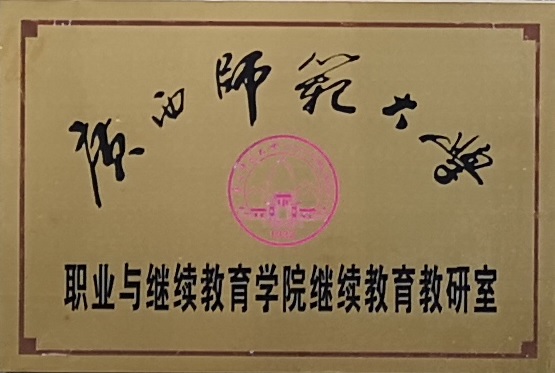 廣西師範大學
职业与继续教育学院继续教育教研室